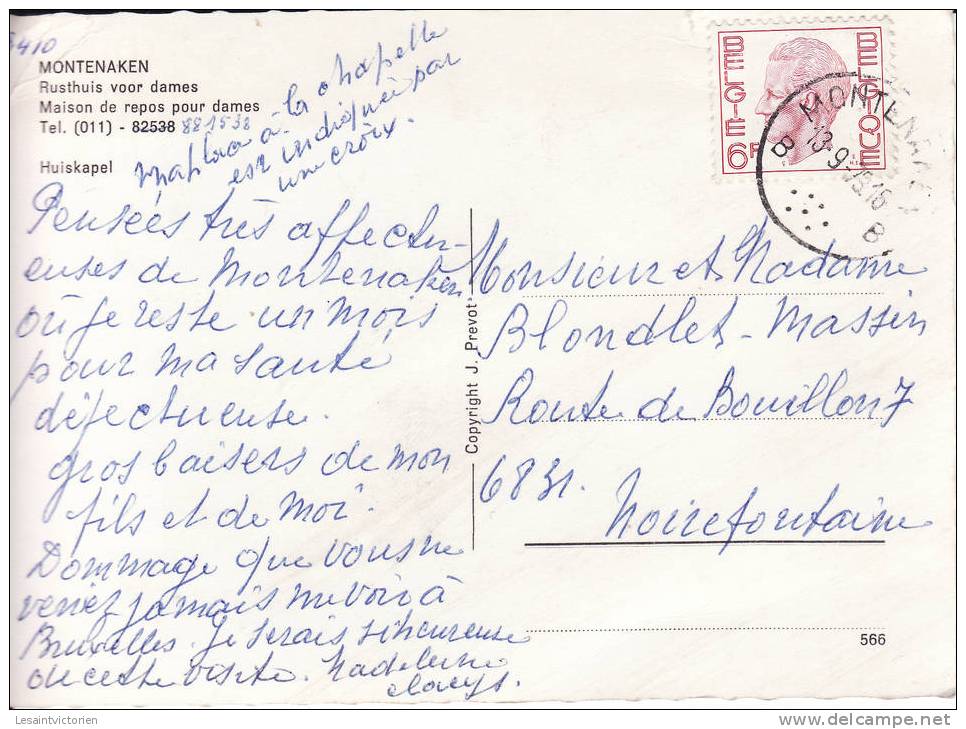 3410
MONTENAKEN
Rusthuis voor dames
Maison de repos pour dames
Tel. (011) - 82538 881538
Huiskapel
ma place à la chapelle
est indiquée par
une croix.
BELGIE BELGIQUE
6F
MONTENAKEN
13-9-75 16
B B
Pensées très affectu-
euses de Montenaken
où je reste un mois
pour ma santé
défectueuse.
gros baisers de mon
fils et de moi.
Dommage que vous ne
veniez jamais me voir à
Bruxelles. Je serais si heureuse
de cette visite. Madeleine
Claeys.
Copyright J. Prevot
Monsieur et Madame
Blondlet-Massin
Route de Bouillon 7
6831.
Noirefontaine
566
Lesaintvictorien
www.delcampe.net